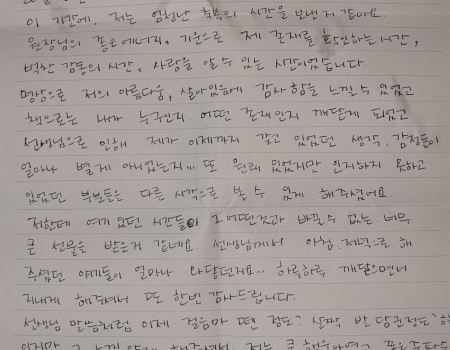 이 기간에, 저는 엄청난 축복의 시간을 보낸거 같아요.
원장님의 좋은 에너지, 기운으로 제 존재를 확인하는 시간,
벅찬 감동의 시간, 사랑을 알 수 있는 시간이었습니다.
명상으로 저의 아름다움, 살아있음에 감사함을 느낄 수 있었고
책으로는 내가 누구인지. 어떤 존재인지 깨닫게 되었고
선생님으로 인해 제가 이제까지 갖고 있었던 생각, 감정들이
얼마나 별게 아니었는지... 또 원래 있었지만 인지하지 못하고
있었던 부분들을 다른 시각으로 볼 수 있게 해주셨어요.
저한테 여기 있던 시간들이 그 어떤것과 바꿀 수 없는 너무
큰 선물을 받은거 같네요. 선생님께서 아침. 저녁으로 해
주셨던 얘기들이 얼마나 와닿던지요... 하루하루 깨달으면서
지내게 해주셔서 또 한번 감사드립니다.
선생님 말씀처럼 이제 걸음마 뗀 정도? 살짝 발 담근정도?